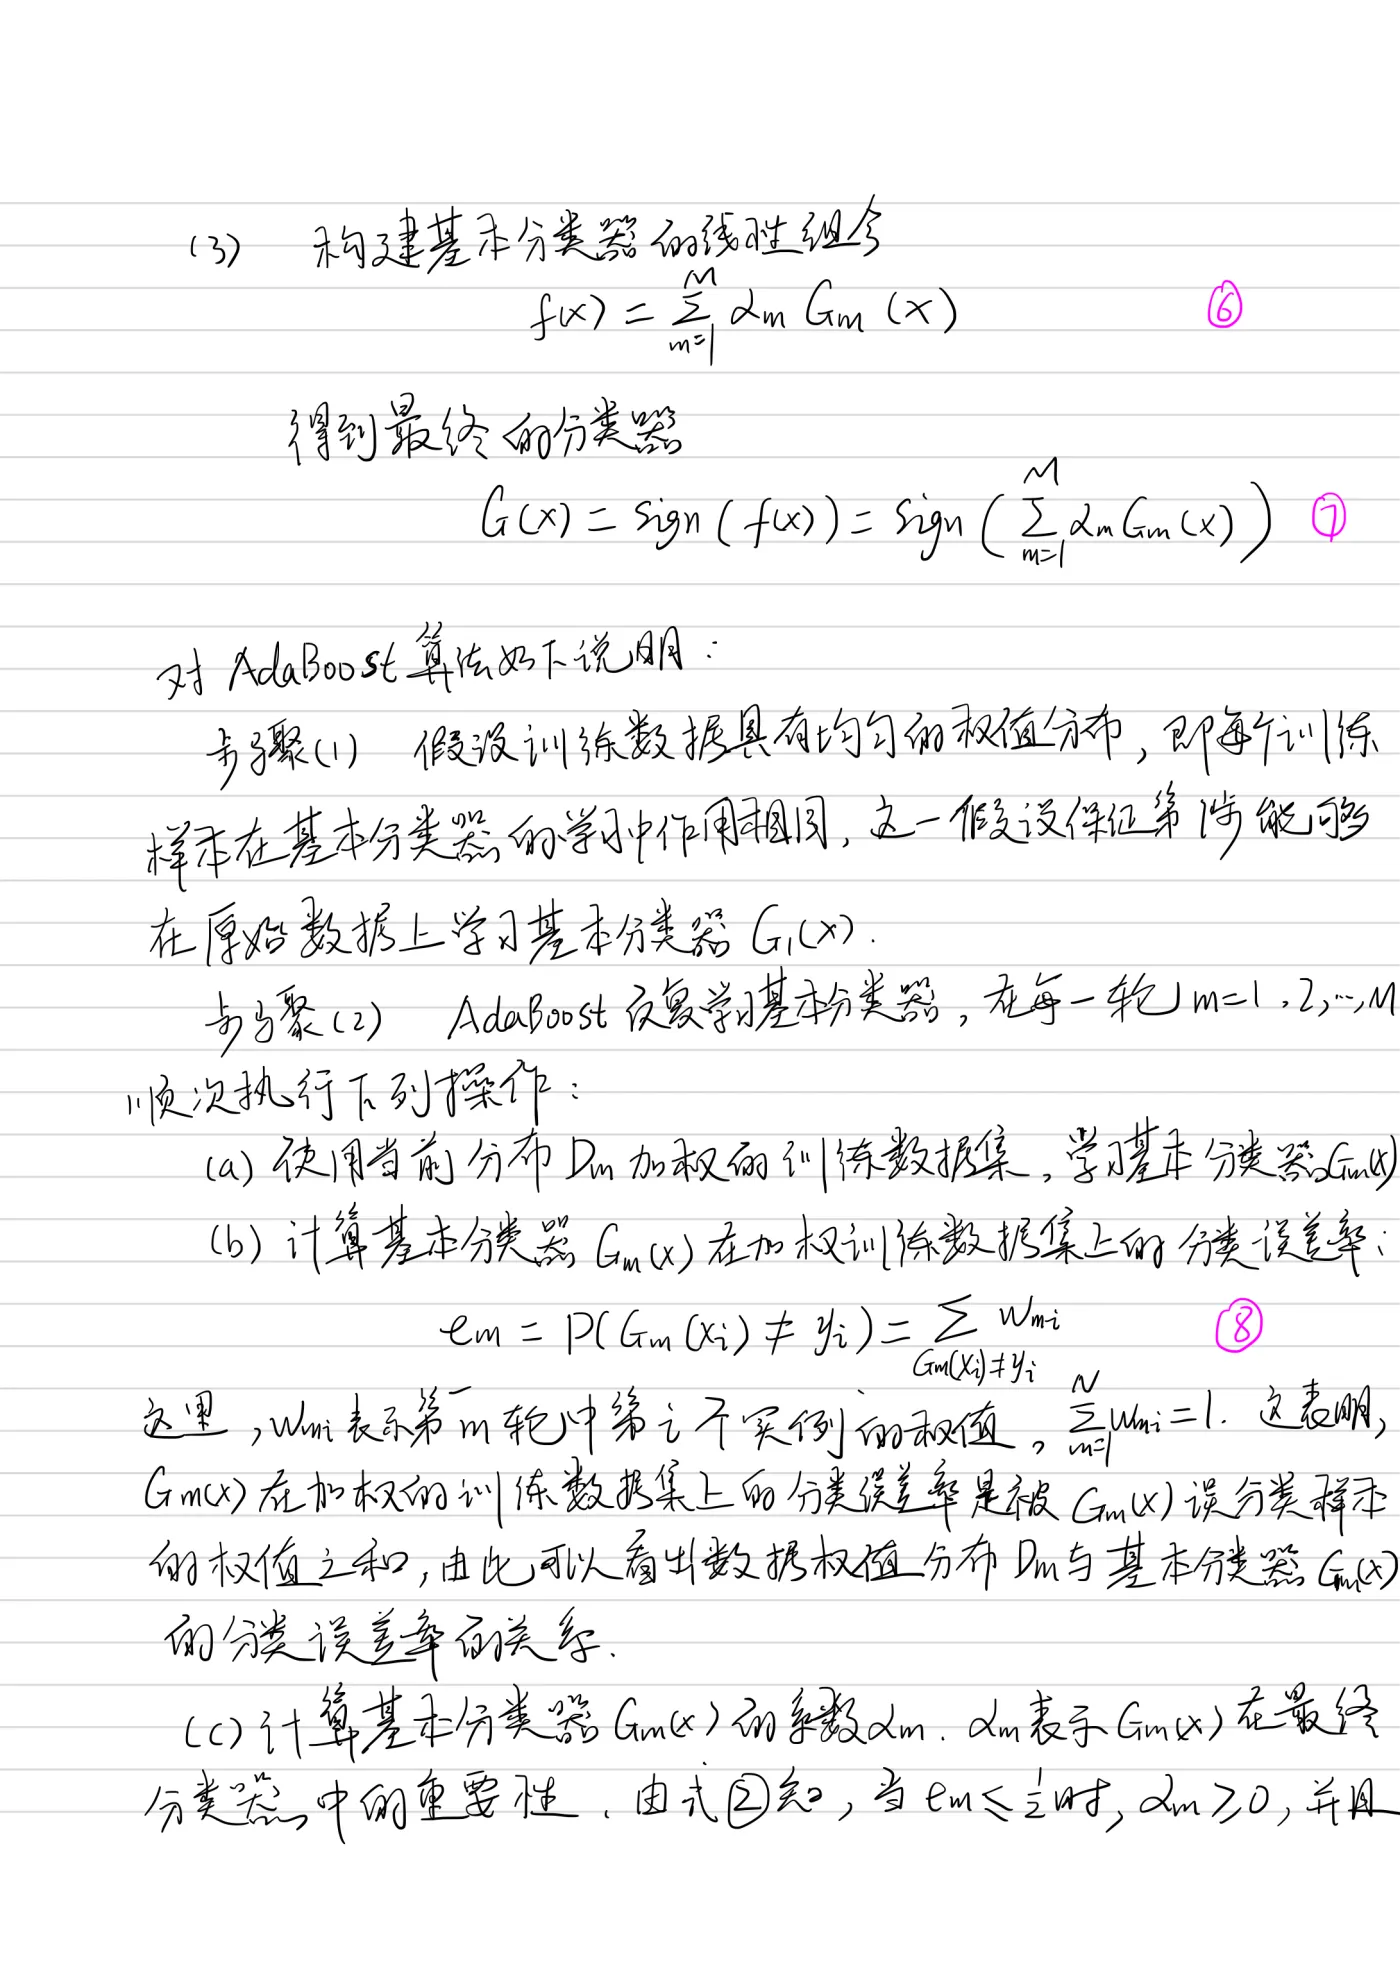 (3) 构建基本分类器的线性组合
f(x) = \sum_{m=1}^{M} α_m G_m(x) ⑥
得到最终的分类器
G(x) = sign(f(x)) = sign(\sum_{m=1}^{M} α_m G_m(x)) ⑦
对AdaBoost算法如下说明：
步骤(1) 假设训练数据具有均匀的权值分布，即每个训练
样本在基本分类器的学习中作用相同，这一假设保证第1步能够
在原始数据上学习基本分类器G_1(x).
步骤(2) AdaBoost反复学习基本分类器，在每一轮m=1,2,…,M
顺次执行下列操作：
(a) 使用当前分布D_m加权的训练数据集，学习基本分类器G_m(x)
(b) 计算基本分类器G_m(x)在加权训练数据集上的分类误差率：
e_m = P(G_m(x_i) ≠ y_i) = \sum_{G_m(x_i)≠y_i} w_{mi} ⑧
这里，w_{mi}表示第m轮中第i个实例的权值，\sum_{m=1}^{N} w_{mi} = 1. 这表明，
G_m(x)在加权的训练数据集上的分类误差率是被G_m(x)误分类样本
的权值之和，由此可以看出数据权值分布D_m与基本分类器G_m(x)
的分类误差率的关系.
(c) 计算基本分类器G_m(x)的系数α_m. α_m表示G_m(x)在最终
分类器中的重要性. 由式②知，当e_m ≤ \frac{1}{2}时，α_m ≥ 0，并且